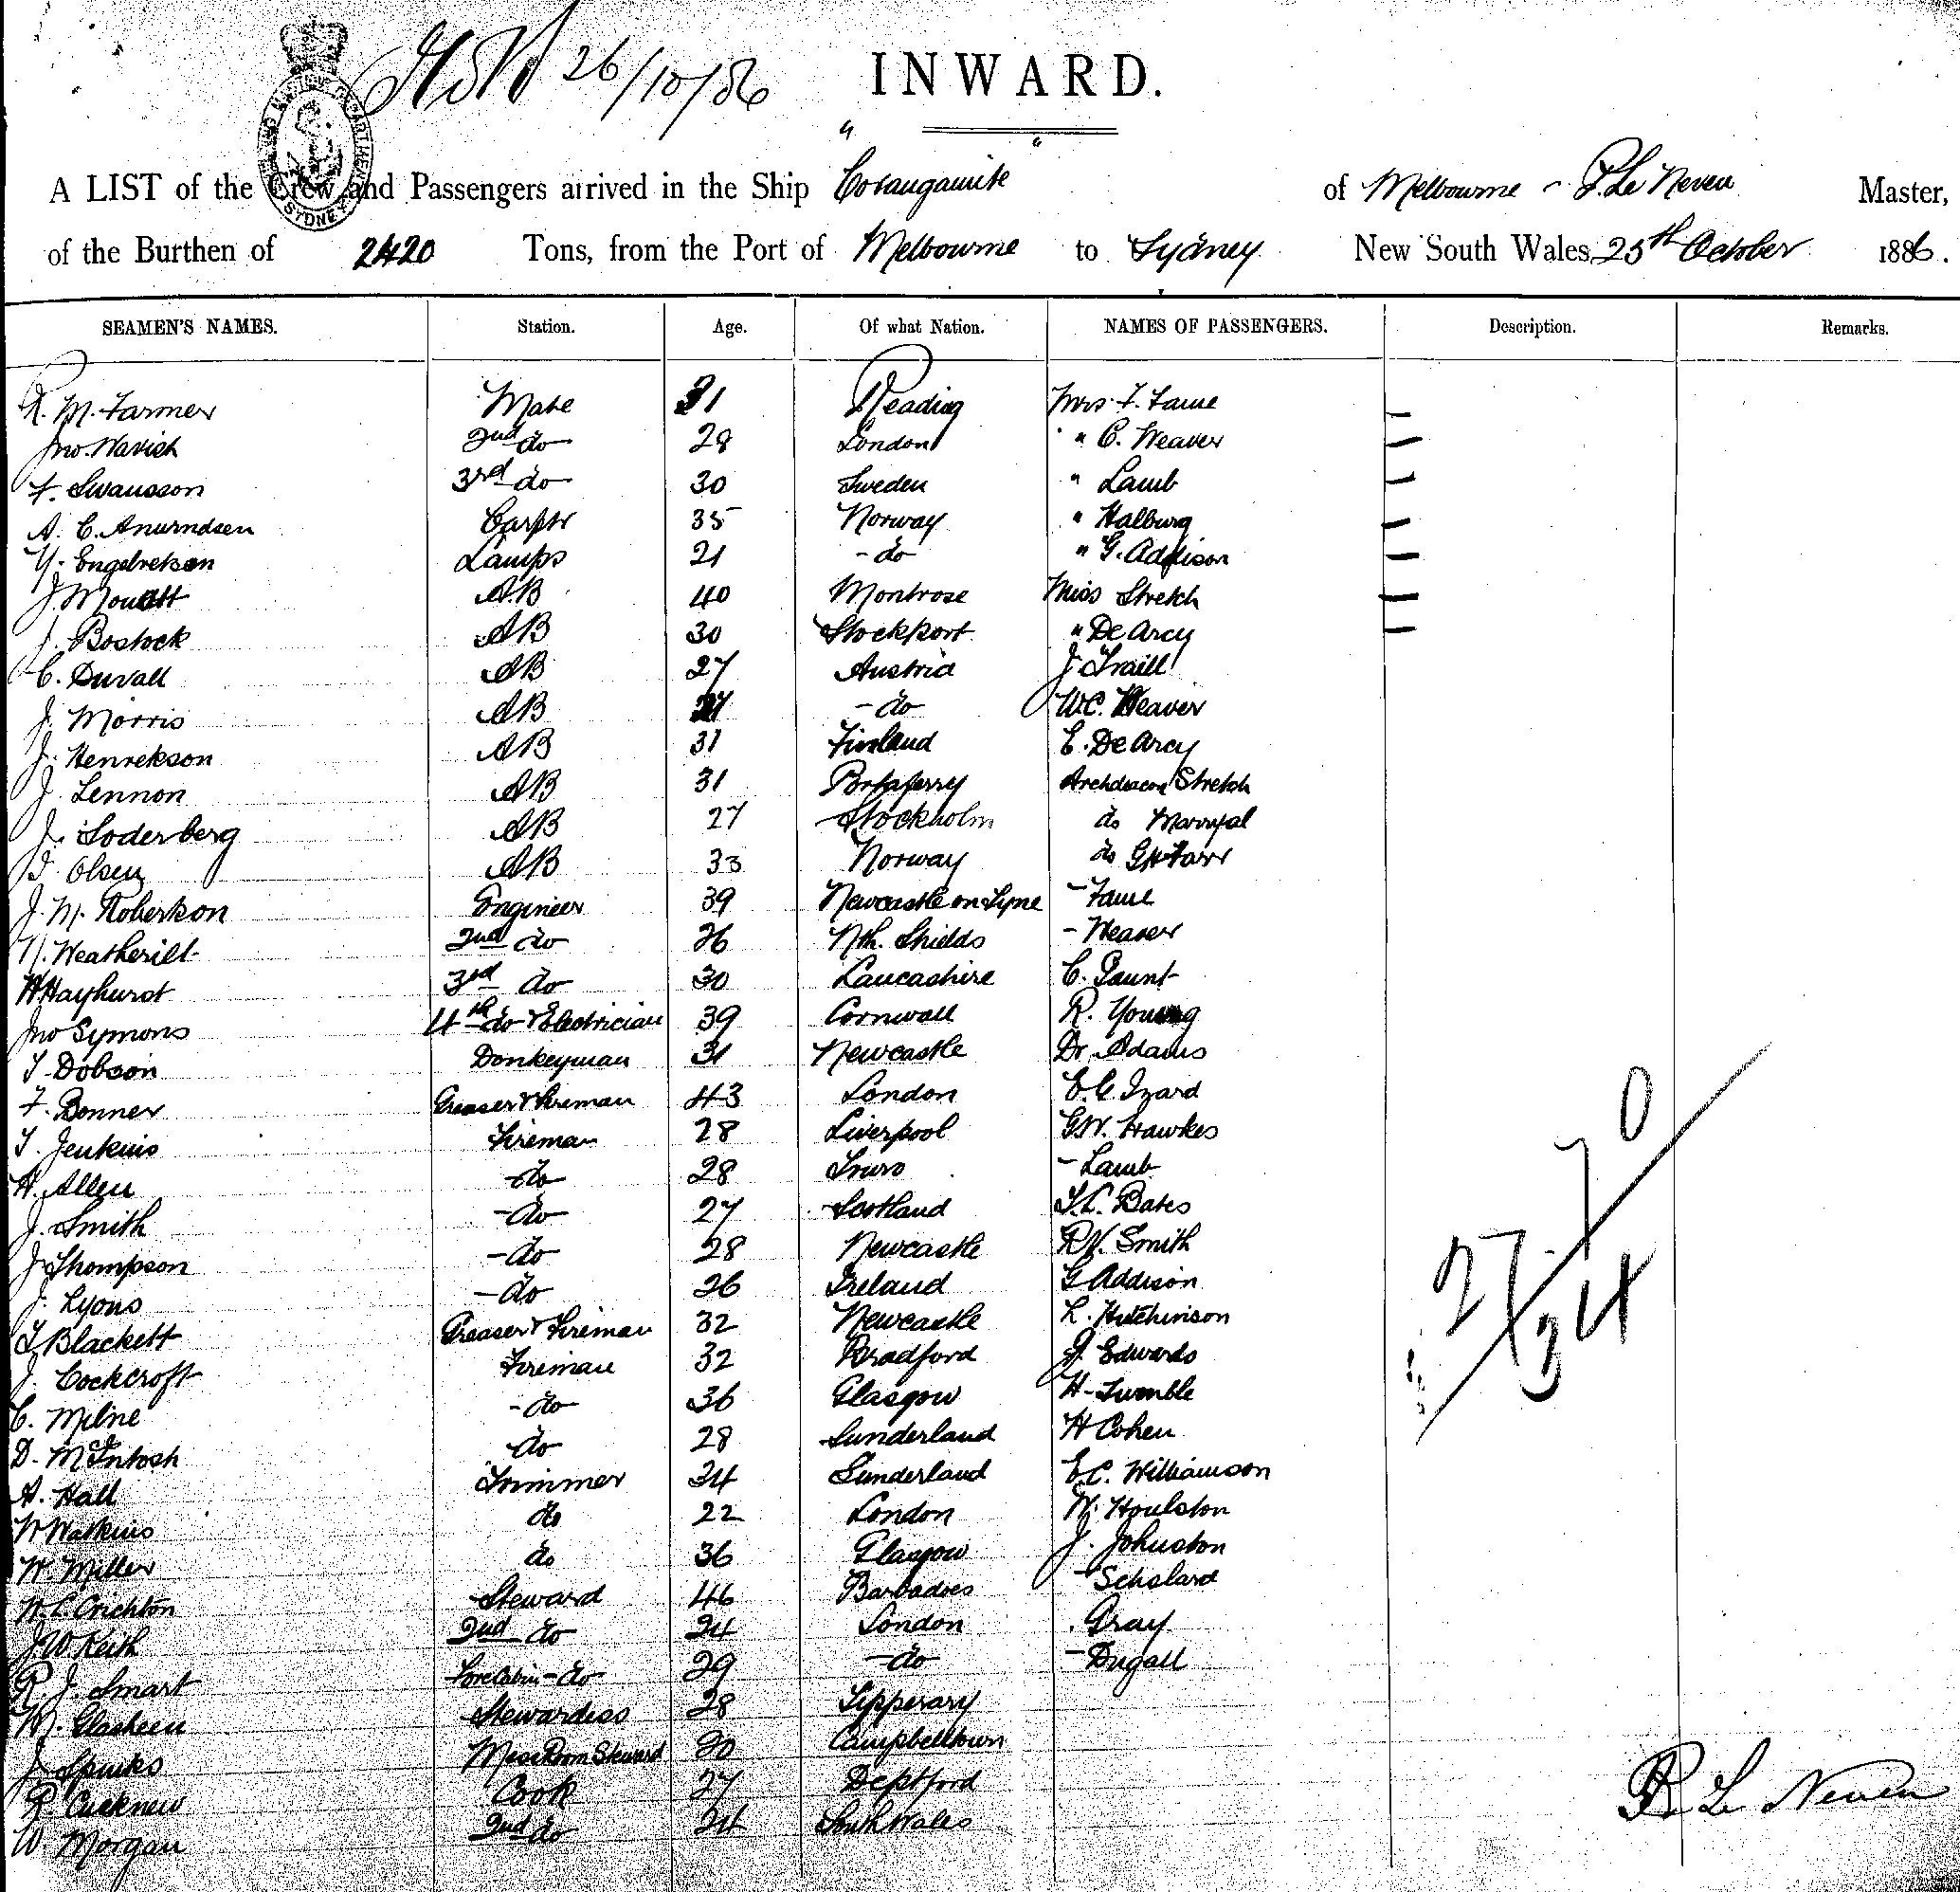 26/10/86
INWARD.
A LIST of the Crew and Passengers arrived in the Ship "Corangamite" of Melbourne - P. Le Neven Master,
of the Burthen of 2420 Tons, from the Port of Melbourne to Sydney New South Wales, 25th October 1886.
SEAMEN'S NAMES. Station. Age. Of what Nation. NAMES OF PASSENGERS. Description. Remarks.
R. M. Farmer Mate 31 Reading Mrs. F. Fame —
Jno. Navich 2nd do 28 London " C. Weaver —
F. Swansson 3rd do 30 Sweden " Lamb —
A. C. Anurndsen Carptr 35 Norway " Halburg —
Y. Engebretson Lamps 21 - do " G. Addison —
J. Mouatt AB 40 Montrose Miss Stretch —
J. Bostock AB 30 Stockport " De Arcy —
C. Duvall AB 27 Austria J. Traill
J. Morris AB - do W.C. Weaver
J. Henrekson AB 31 Finland E. De Arcy
J. Lennon AB 31 Portaferry Archdeacon Stretch
J. Soderberg AB 27 Stockholm do Marryal
Olsen AB 33 Norway do G H Farr
J. M. Robertson Engineer 39 Newcastle on Tyne - Fame
N. Weatherilt 2nd do 26 Nth. Shields - Weaver
W Hayhurst 3rd do 30 Lancashire C. Gaunt
Jno Symons 4th do & Electrician 39 Cornwall R. Young
T. Dobson Donkeyman 31 Newcastle Dr. Adams
F. Bonner Greaser & Fireman 43 London E. C. Izard
T. Jenkins Fireman 28 Liverpool G.W. Hawkes
A. Allen - do 28 Truro - Lamb
J. Smith - do 27 Scotland T. C. Bates
J Thompson - do 28 Newcastle R.N. Smith
J. Lyons - do 26 Ireland G Addison
T Blackett Greaser & Fireman 32 Newcastle L. Hutchinson
J. Cockcroft Fireman 32 Bradford J. Edwards
C. Milne - do 36 Glasgow H. Tumble
D. McIntosh - do 28 Sunderland H Cohen
A. Hall Trimmer 34 Sunderland E.C. Williamson
W Watkins do 22 London W. Houlston
W. Miller do 36 Glasgow J. Johnston
W. C. Crichton Steward 46 Barbadoes - Scholard
J W Keith 2nd do 24 London . Gray
R. J. Smart Fore Cabin - do 29 - do - Dugall
M. Glasheen Stewardess 28 Tipperary
J Spinks Mess Room Steward 20 Campbelltown
R. Cucknew Cook 27 Deptford
W. Morgan 2nd do 24 South Wales
27 . 7 0
34
P. Le Neven